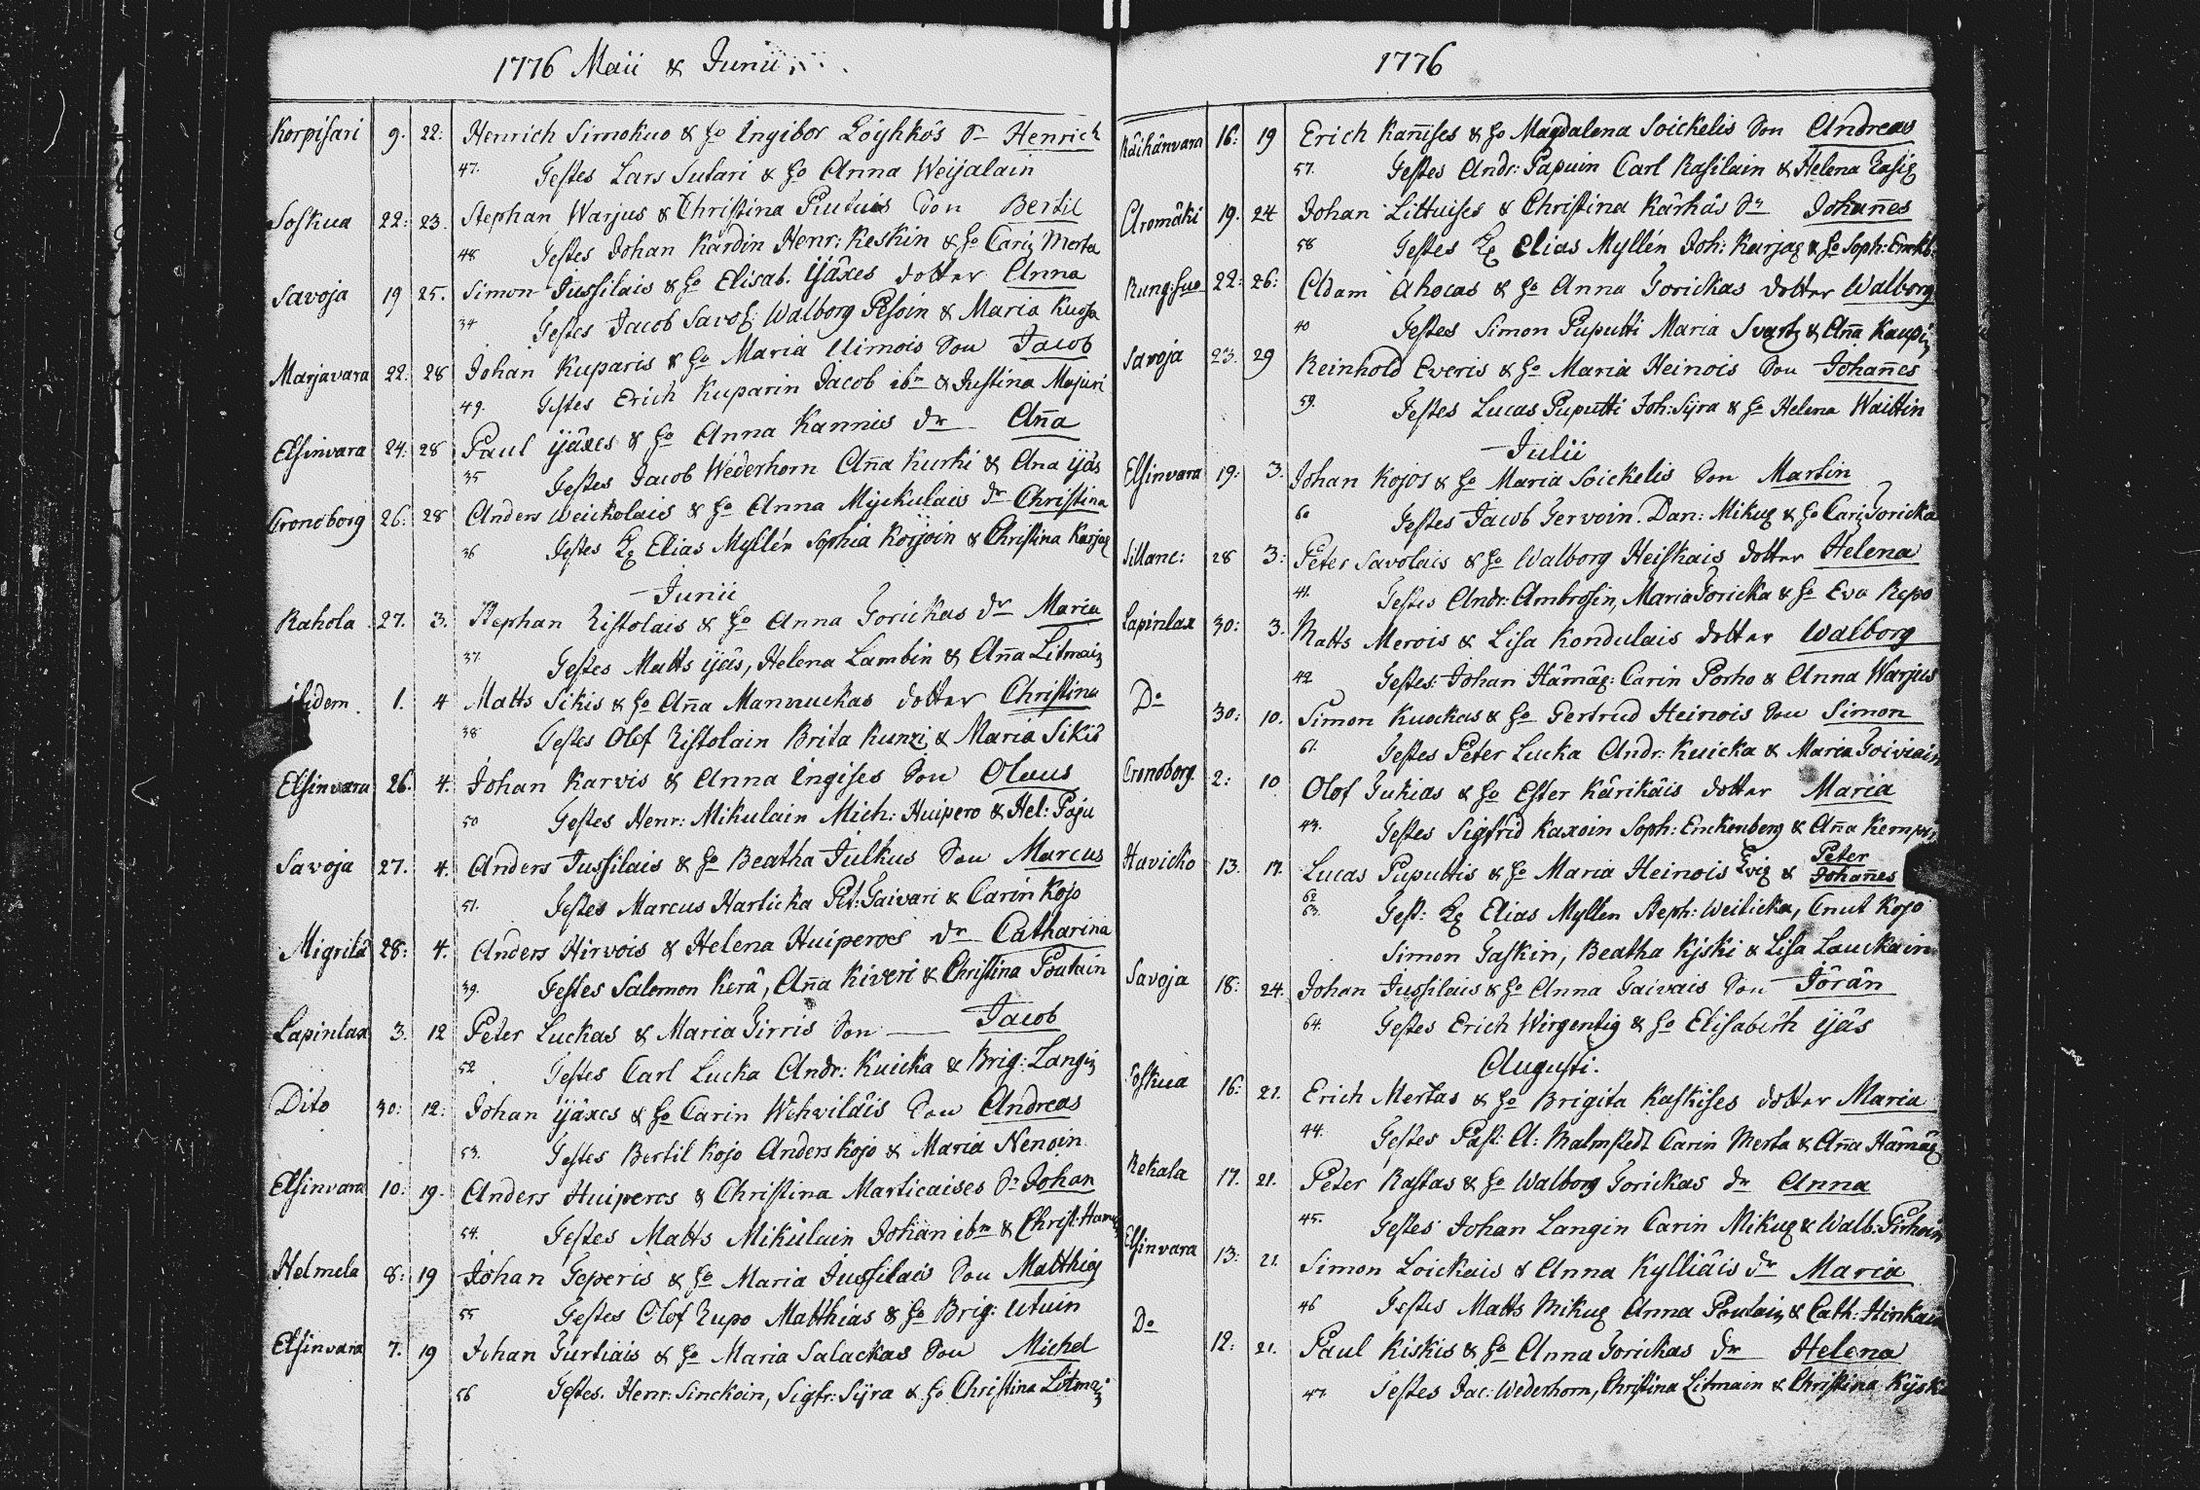 1776 Maii & Junii
Korpisari 9. 22: Henrich Simokuo & ho Ingibor Löyhkös Sn Henrich
47. Testes Lars Sutari & ho Anna Weijalain
Soskua 22: 23. Stephan Warjus & Christina Son Bertil
48 Testes Johan Kardin Henr: Keskin & ho Carin Merta
Savoja 19 25. Simon Jussilais & ho Elisab. ijäxes dotter Anna
34 Testes Jacob Walborg Pesoin & Maria Kuosa
Marjavara 22: 28 Johan Kuparis & ho Maria Uimois Son Jacob
49. Testes Erich Kuparin Jacob ibm & Justina Majuri
Elsinvara 24: 28 Paul ijäxes & ho Anna Kannies dr Aña
35 Testes Jacob Wederhorn Aña Kurki & Ana ijäs
Cronoborg 26: 28 Anders Weickolais & ho Anna Myckulais dr Christina
36 Testes Elias Myllén Sophia Koijoin & Christina Karjaz
Junii
Rahola 27. 3. Stephan Ristolais & ho Anna Torickas dr Maria
37. Testes Matts ijäs, Helena Lambin & Aña Litmain
ibidem. 1. 4 Matts Sikis & ho Aña Mannuckas dotter Christina
38 Testes Olof Ristolain Brita Kunzi & Maria Sikiö
Elsinvara 26. 4. Johan Karvis & Anna Ingises Son Olaus
50 Testes Henr: Mikulain Mich: Huipero & Hel: Paju
Savoja 27. 4. Anders Jussilais & ho Beatha Julkus Son Marcus
51. Testes Marcus Harticka Pet: Taivari & Carin Kojo
Migrilä 28: 4. Anders Hirvois & Helena Huiperoes dr Catharina
39. Testes Salomon Kerä, Aña Kiveri & Christina Poutain
Lapinlax 3. 12 Peter Luckas & Maria Tirris Son Jacob
52 Testes Carl Lucka Andr: Kuicka & Brig: Langin
Dito 30: 12: Johan ijäxes & ho Carin Wehviläis Son Andreas
53. Testes Bertil Kojo Anders Kojo & Maria Nenoin
Elsinvara 10: 19. Anders Huiperos & Christina Marticaises Sn Johan
54. Testes Matts Mikulain Johan ibm & Christ:
Helmela 8: 19 Johan Teperis & ho Maria Jussilais Son Matthias
55 Testes Olof Rupo Matthias & ho Brig: Utuin
Elsinvara 7. 19 Johan Turtiais & ho Maria Salackas Son Michel
56 Testes. Henr: Sinckoin, Sigfr: Syra & ho Christina Litmain
1776
Räihänvara 16: 19 Erich Kañises & ho Magdalena Soickelis Son Andreas
57. Testes Andr: Papuin Carl Rasilain & Helena
Aromäki 19. 24 Johan Littuises & Christina Kärhäs Sn Johañes
58 Testes Elias Myllén Joh: Karjaz & ho Soph:
22: 26: Adam Ahocas & ho Anna Torickas dotter Walborg
40 Testes Simon Puputti Maria Svartz & Aña
Savoja 23. 29 Reinhold Everis & ho Maria Heinois Son Johañes
59. Testes Lucas Puputti Joh: Syra & ho Helena Waittin
Julii
Elsinvara 19: 3. Johan Kojos & ho Maria Soickelis Son Martin
60 Testes Jacob Tervoin. Dan: Mikuz & ho Carin Toricka
Sillanc: 28 3: Peter Savolais & ho Walborg Heiskais dotter Helena
41. Testes Andr: Ambrosin, Maria Toricka & ho Eva Repo
Lapinlax 30: 3. Matts Merois & Lisa Kondulais dotter Walborg
42 Testes: Johan Hämäz: Carin Porho & Anna Warjus
Do 30: 10. Simon Kuockas & ho Gertrud Heinois Son Simon
61. Testes Peter Lucka Andr: Kuicka & Maria Toiviain
Cronoborg. 2: 10 Olof Tukias & ho Ester Kärikäis dotter Maria
43. Testes Sigfrid Kaxoin Soph: Emkenberg & Aña
Havicko 13. 17. Lucas Puputtis & ho Maria Heinois Tvig & Peter Johañes
62 63. Test: Elias Myllen Steph: Weiticka, Cnut Kojo
Simon Taskin, Beatha Kyski & Lisa Lauckain
Savoja 18: 24. Johan Jussilais & ho Anna Taivais Son Jörän
64. Testes Erich Wirgentig & ho Elisabeth ijäs
Augusti.
Soskua 16: 21. Erich Mertas & ho Brigita Kaskises dotter Maria
44. Testes Past: A: Malmstedt Carin Merta & Aña Hämäz
Rekala 17. 21. Peter Rastas & ho Walborg Torickas dr Anna
45. Testes Johan Langin Carin Mikuz & Walb: Pirhoin
Elsinvara 13: 21. Simon Loickais & Anna Kylliäis dr Maria
46 Testes Matts Mikuz Anna Poutain & Cath: Hinkain
Do 12: 21. Paul Kiskis & ho Anna Torickas dr Helena
47. Testes Jac: Wederhorn, Christina Litmain & Christina